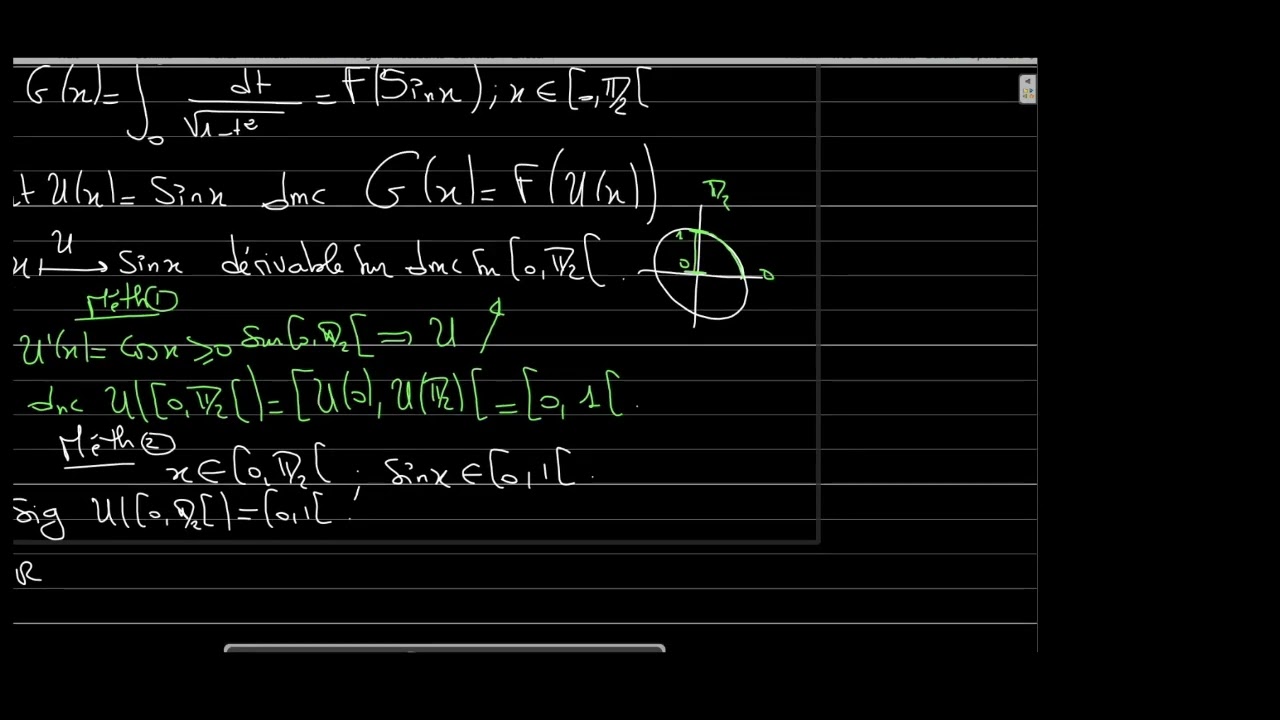 G(x) = ∫₀ dt/√(1-t²) = F(Sinx) ; x ∈ [0, π/2[
t U(x) = Sinx dmc G(x) = F(U(x))
π/2
1
0
0
x ⟼ Sinx dérivable sur dmc sur [0, π/2[ .
U
Méth ①
U'(x) = Cosx ≥ 0 sur [0, π/2[ ⟹ U ↗
dmc U([0, π/2[) = [U(0), U(π/2)[ = [0, 1[ .
Méth ②
x ∈ [0, π/2[ ; Sinx ∈ [0, 1[ .
Sig U([0, π/2[) = [0, 1[ .
R